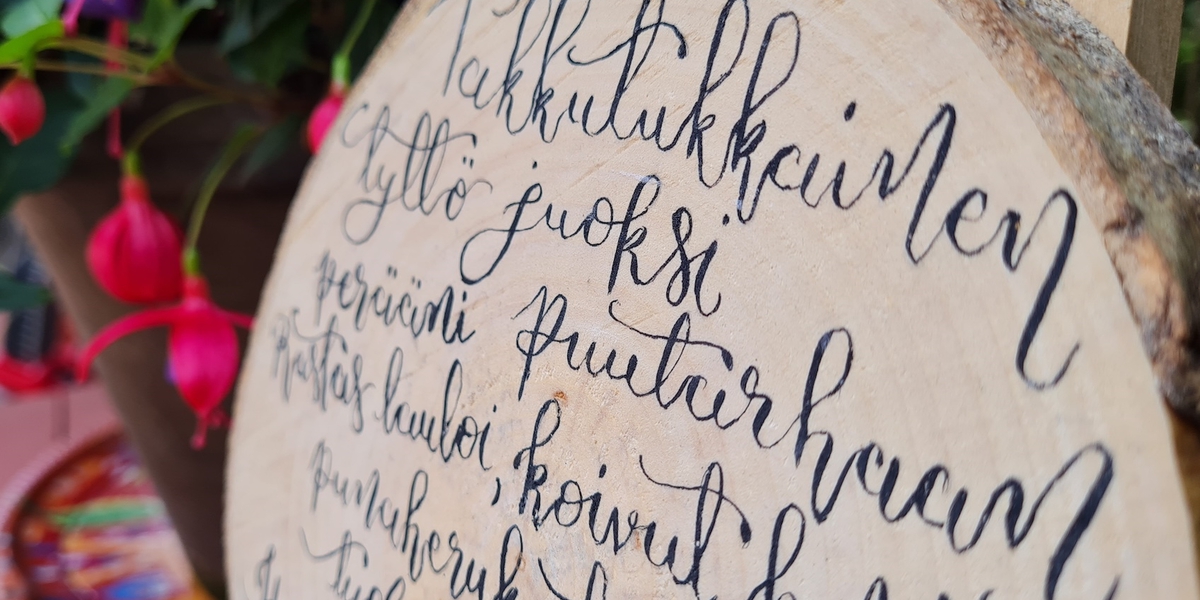 Takkutukkainen
tyttö juoksi
perääni puutarhaan
Rastas lauloi, koivut
punaheruk